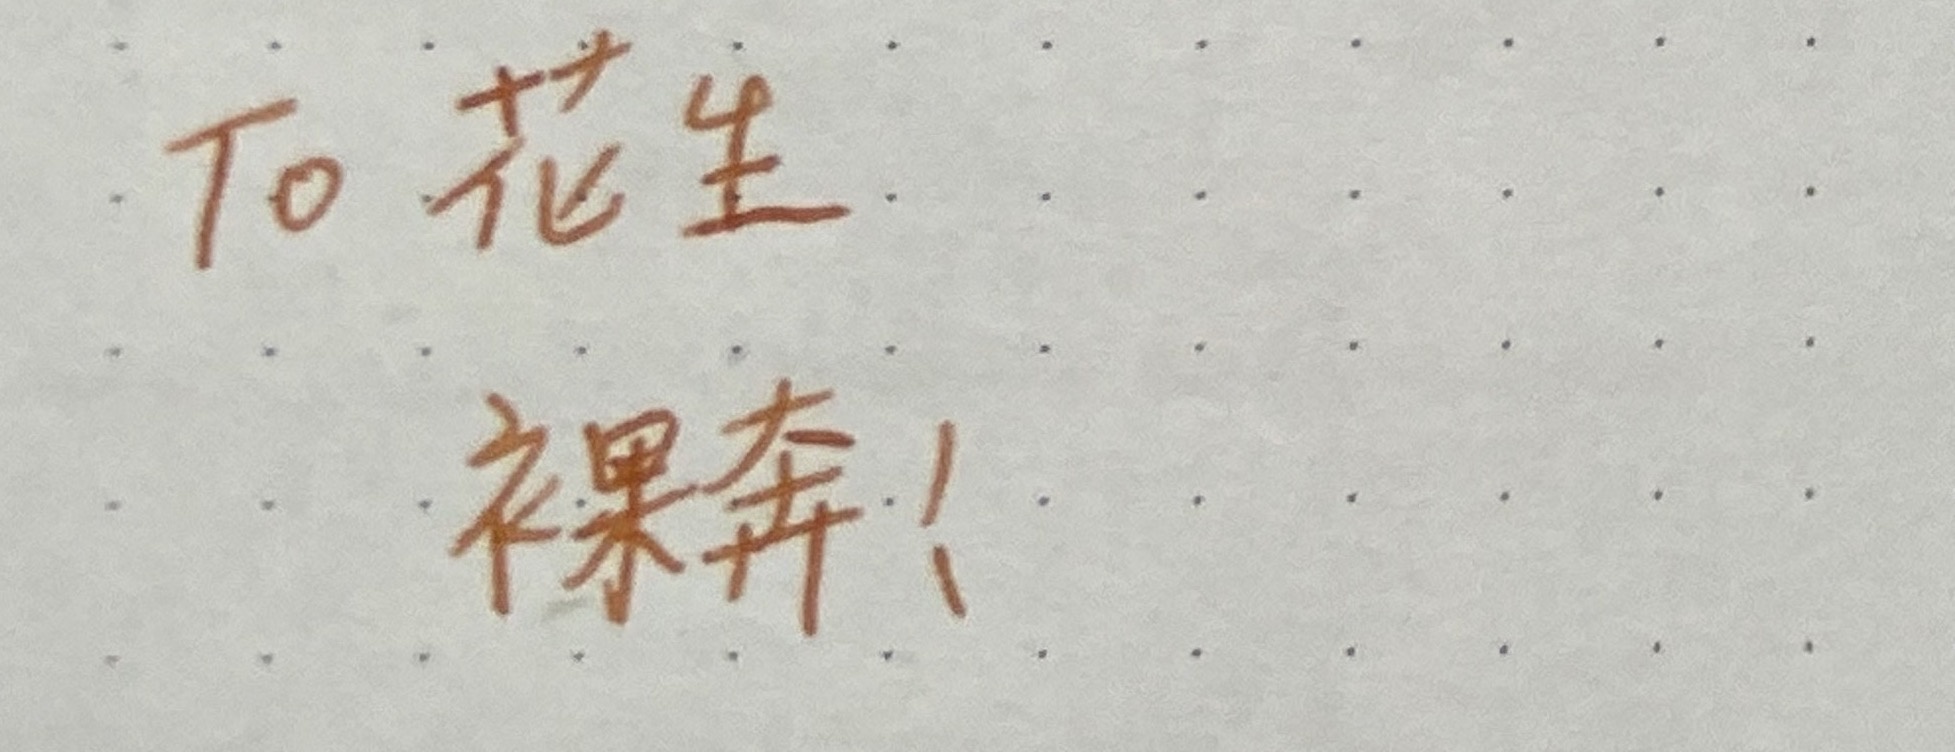 To 花生
裸奔！